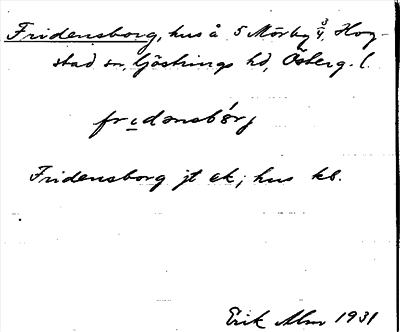 Fridensborg, hus å 5 Mörby 3/4, Hog-
stad sn, Göstrings hd, Österg. l.
fridensbórj
Fridensborg jt ek; hus kb.
Erik Alm 1931